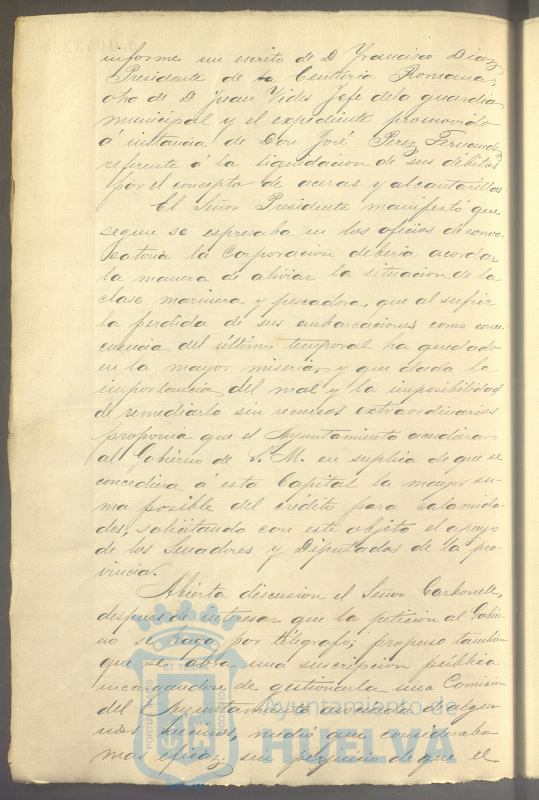 informe un escrito de D Francisco Diaz,
Presidente de la Centuria Romana,
otro de D Juan Vides Jefe de la guardia
municipal y el expediente promovido
á instancia de Don José Perez Fernandez
referente á la liquidacion de sus débitos
por el concepto de aceras y alcantarillas
El Señor Presidente manifestó que
segun se espresaba en los oficios de convo-
catoria la Corporacion deberia acordar
la manera de aliviar la situacion de la
clase marinera y pescadora, que al sufrir
la perdida de sus embarcaciones como conse-
cuencia del último temporal ha quedado
en la mayor miseria, y que dada la
importancia del mal y la imposibilidad
de remediarlo sin recursos extraordinarios
proponia que el Ayuntamiento acudiera
al Gobierno de S. M. en suplica de que se
concediera á esta Capital la mayor su-
ma posible del crédito para calamida-
des, solicitando con este objeto el apoyo
de los Senadores y Diputados de la pro-
vincia.
Abierta discusion el Señor Carbonell,
despues de interesar que la peticion al Gobier-
no se haga por telégrafo; propuso tambien
que se abra una suscripcion pública
encargandose de gestionarla una Comision
del Ayuntamiento asociada de algu-
nos vecinos, medio que consideraba
mas eficaz, sin perjuicio de que el
Ayuntamiento de
HUELVA